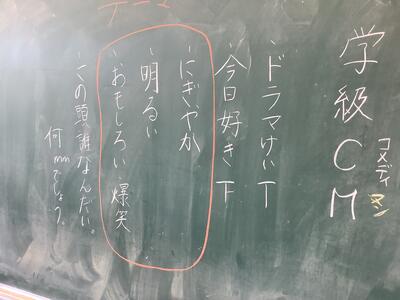 テーマ
学級CM
コメディ
マン
・ドラマけいT
・今日好き下
・にぎやか
・明るい
・おもしろい 爆笑
・この頭誰なんだい。
何mmでしょう。